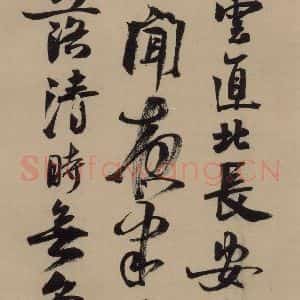 雲直北長安
聞夜半
落清時無
Shufawang.CN